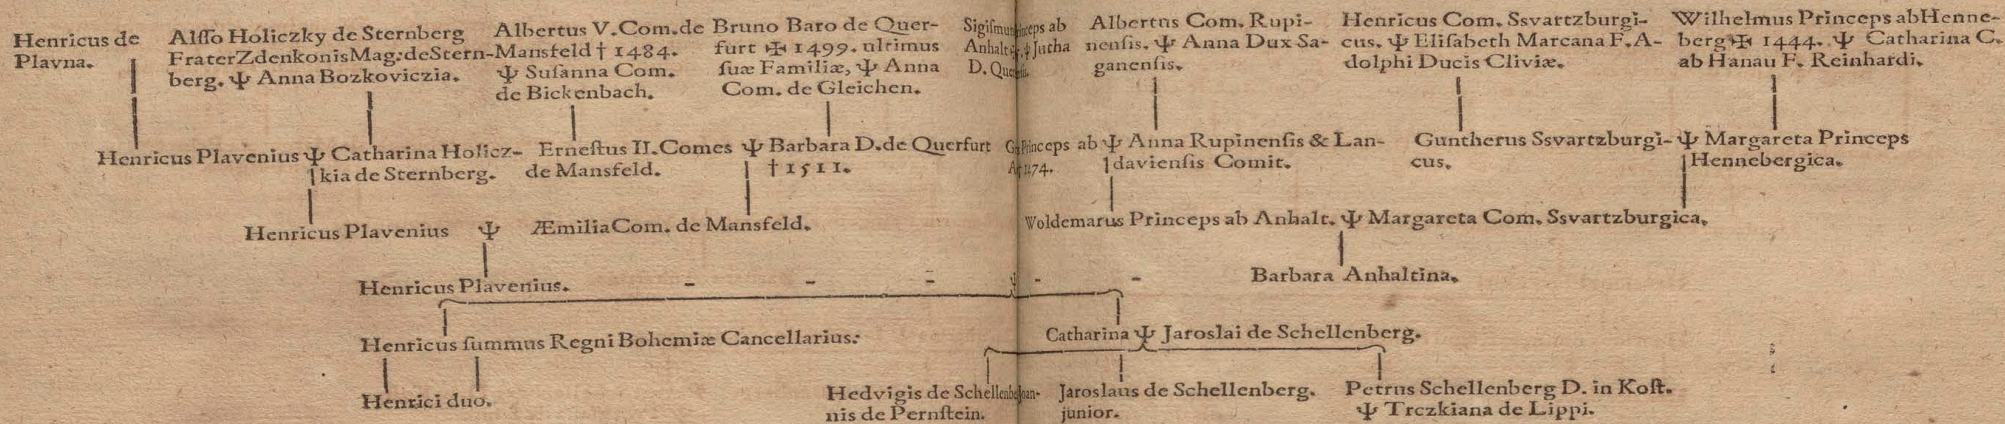 Henricus de
Plavna.
Alſſo Holiczky de Sternberg
Frater Zdenkonis Mag: de Stern-
berg. Ψ Anna Bozkoviczia.
Albertus V. Com. de
Mansfeld † 1484.
Ψ Suſanna Com.
de Bickenbach.
Bruno Baro de Quer-
furt ✠ 1499. ultimus
ſuæ Familiæ, Ψ Anna
Com. de Gleichen.
Sigiſmun nceps ab
Anhalt Ψ Jutha
D. Que
Albertus Com. Rupi-
nenſis. Ψ Anna Dux Sa-
ganenſis.
Henricus Com. Ssvartzburgi-
cus. Ψ Eliſabeth Marcana F. A-
dolphi Ducis Cliviæ.
Wilhelmus Princeps ab Henne-
berg ✠ 1444. Ψ Catharina C.
ab Hanau F. Reinhardi.
Henricus Plavenius Ψ Catharina Holicz-
kia de Sternberg.
Erneſtus II. Comes Ψ Barbara D. de Querfurt
de Mansfeld. † 1511.
Princeps ab Ψ Anna Rupinenſis & Lan-
1474. davienſis Comit.
Guntherus Ssvartzburgi- Ψ Margareta Princeps
cus. Hennebergica.
Henricus Plavenius Ψ Æmilia Com. de Mansfeld.
Woldemarus Princeps ab Anhalt. Ψ Margareta Com. Ssvartzburgica.
Henricus Plavenius. - - - Ψ - - Barbara Anhaltina.
Henricus ſummus Regni Bohemiæ Cancellarius:
Catharina Ψ Jaroslai de Schellenberg.
Henrici duo.
Hedvigis de Schellenbe Joan-
nis de Pernſtein.
Jaroslaus de Schellenberg.
junior.
Petrus Schellenberg D. in Koſt.
Ψ Trczkiana de Lippi.